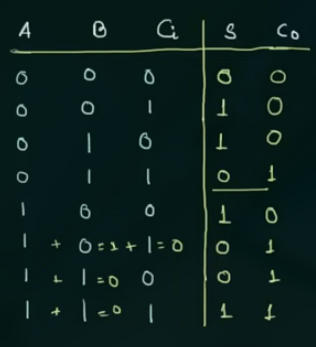 A B Ci S Co
0 0 0 0 0
0 0 1 1 0
0 1 0 1 0
0 1 1 0 1
1 0 0 1 0
1 + 0 = 1 + 1 = 0 0 1
1 + 1 = 0 0 0 1
1 + 1 = 0 1 1 1